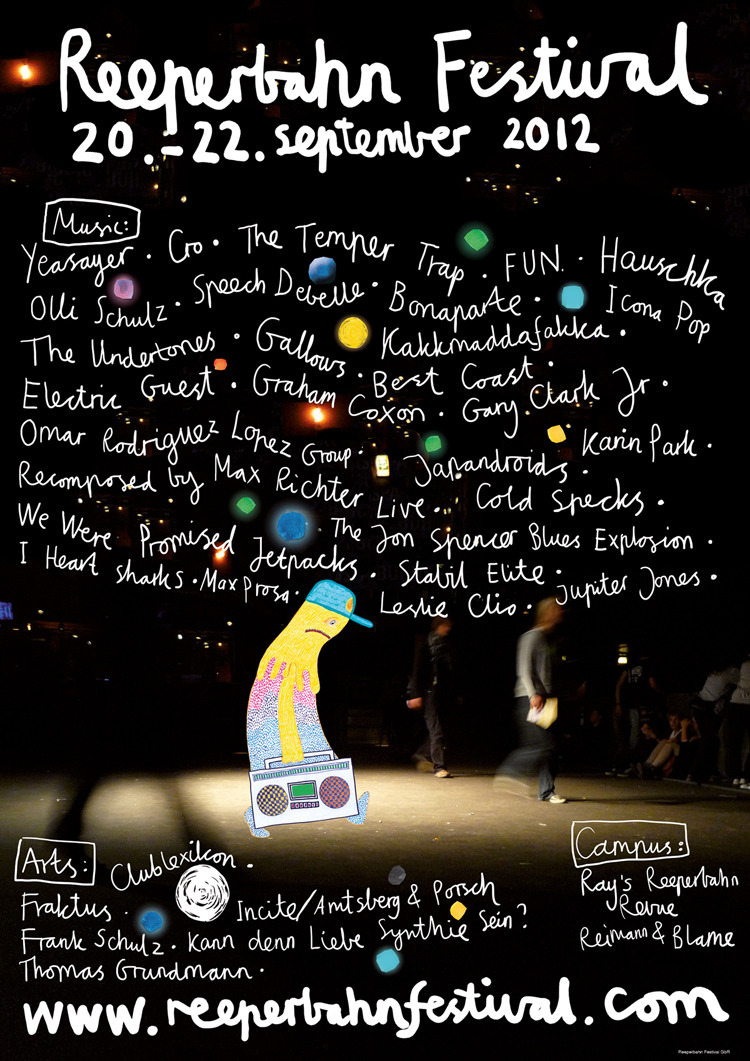 Reeperbahn Festival
20.-22. september 2012
Music:
Yeasayer · Cro · The Temper Trap · FUN. · Hauschka
Olli Schulz · Speech Debelle · Bonaparte · Icona Pop
The Undertones · Gallows · Kakkmaddafakka ·
Electric Guest · Graham Coxon · Best Coast · Gary Clark Jr ·
Omar Rodriguez Lopez Group · Japandroids · Karin Park ·
Recomposed by Max Richter Live · Cold Specks ·
We Were Promised Jetpacks · The Jon Spencer Blues Explosion ·
I Heart Sharks · Max Prosa · Stabil Elite ·
Leslie Clio · Jupiter Jones ·
Arts:
Clublexikon ·
Fraktus · Incite/Amtsberg & Porsch
Frank Schulz · Kann denn Liebe Synthie Sein?
Thomas Grundmann ·
Campus:
Ray's Reeperbahn
Revue
Reimann & Blame
www.reeperbahnfestival.com
Reeperbahn Festival GbR